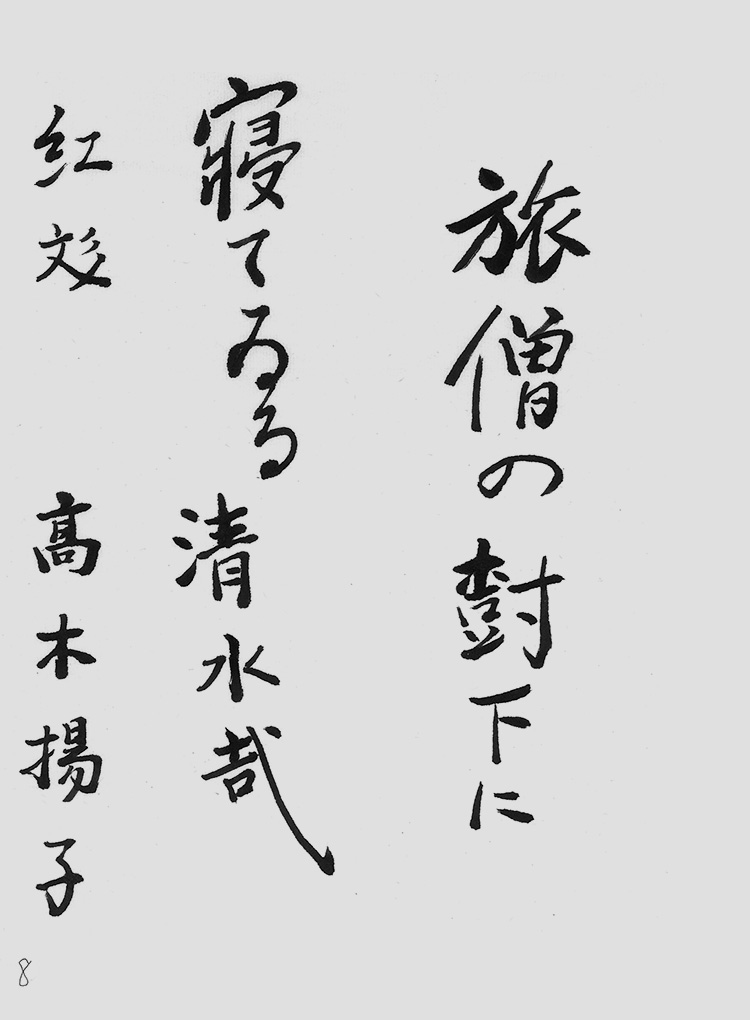 旅僧の樹下に
寢てゐる清水哉
紅彣　高木揚子
8